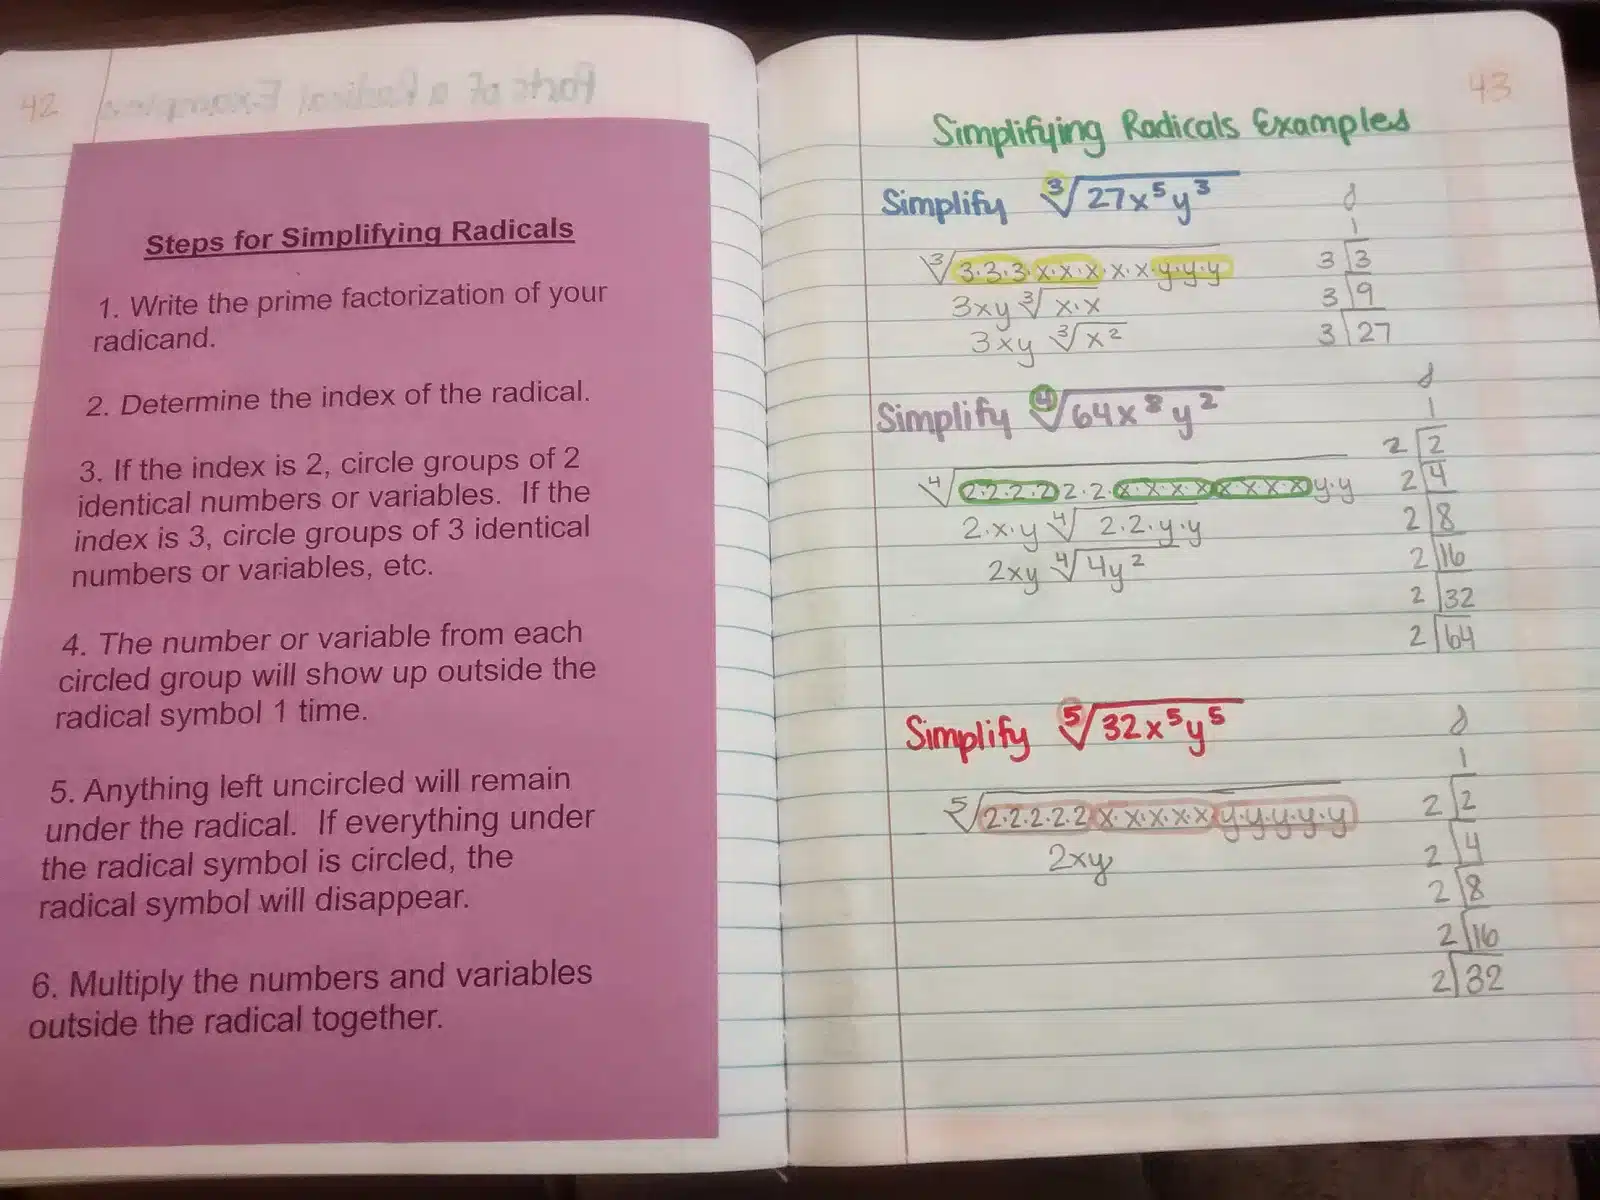 42
Parts of a Radical Examples
Steps for Simplifying Radicals
1. Write the prime factorization of your
radicand.
2. Determine the index of the radical.
3. If the index is 2, circle groups of 2
identical numbers or variables. If the
index is 3, circle groups of 3 identical
numbers or variables, etc.
4. The number or variable from each
circled group will show up outside the
radical symbol 1 time.
5. Anything left uncircled will remain
under the radical. If everything under
the radical symbol is circled, the
radical symbol will disappear.
6. Multiply the numbers and variables
outside the radical together.
43
Simplifying Radicals Examples
Simplify ³√27x⁵y³
³√3·3·3·x·x·x·x·x·y·y·y
3xy ³√x·x
3xy ³√x²
1
3 3
3 9
3 27
Simplify ⁴√64x⁸y²
⁴√2·2·2·2·2·2·x·x·x·x·x·x·x·x·y·y
2·x·y ⁴√2·2·y·y
2xy ⁴√4y²
1
2 2
2 4
2 8
2 16
2 32
2 64
Simplify ⁵√32x⁵y⁵
⁵√2·2·2·2·2·x·x·x·x·x·y·y·y·y·y
2xy
1
2 2
2 4
2 8
2 16
2 32